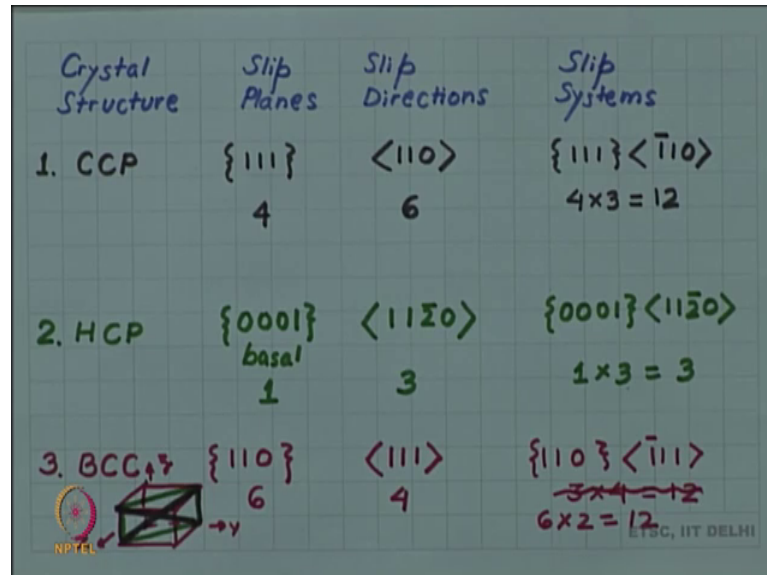 Crystal Structure Slip Planes Slip Directions Slip Systems
1. CCP {111} <110> {111}<1̄10>
4 6 4×3=12
2. HCP {0001} <112̄0> {0001}<112̄0>
basal
1 3 1×3=3
3. BCC {110} <111> {110}<1̄11>
z 6 4 3×4=12
→Y 6×2=12
NPTEL ETSC, IIT DELHI